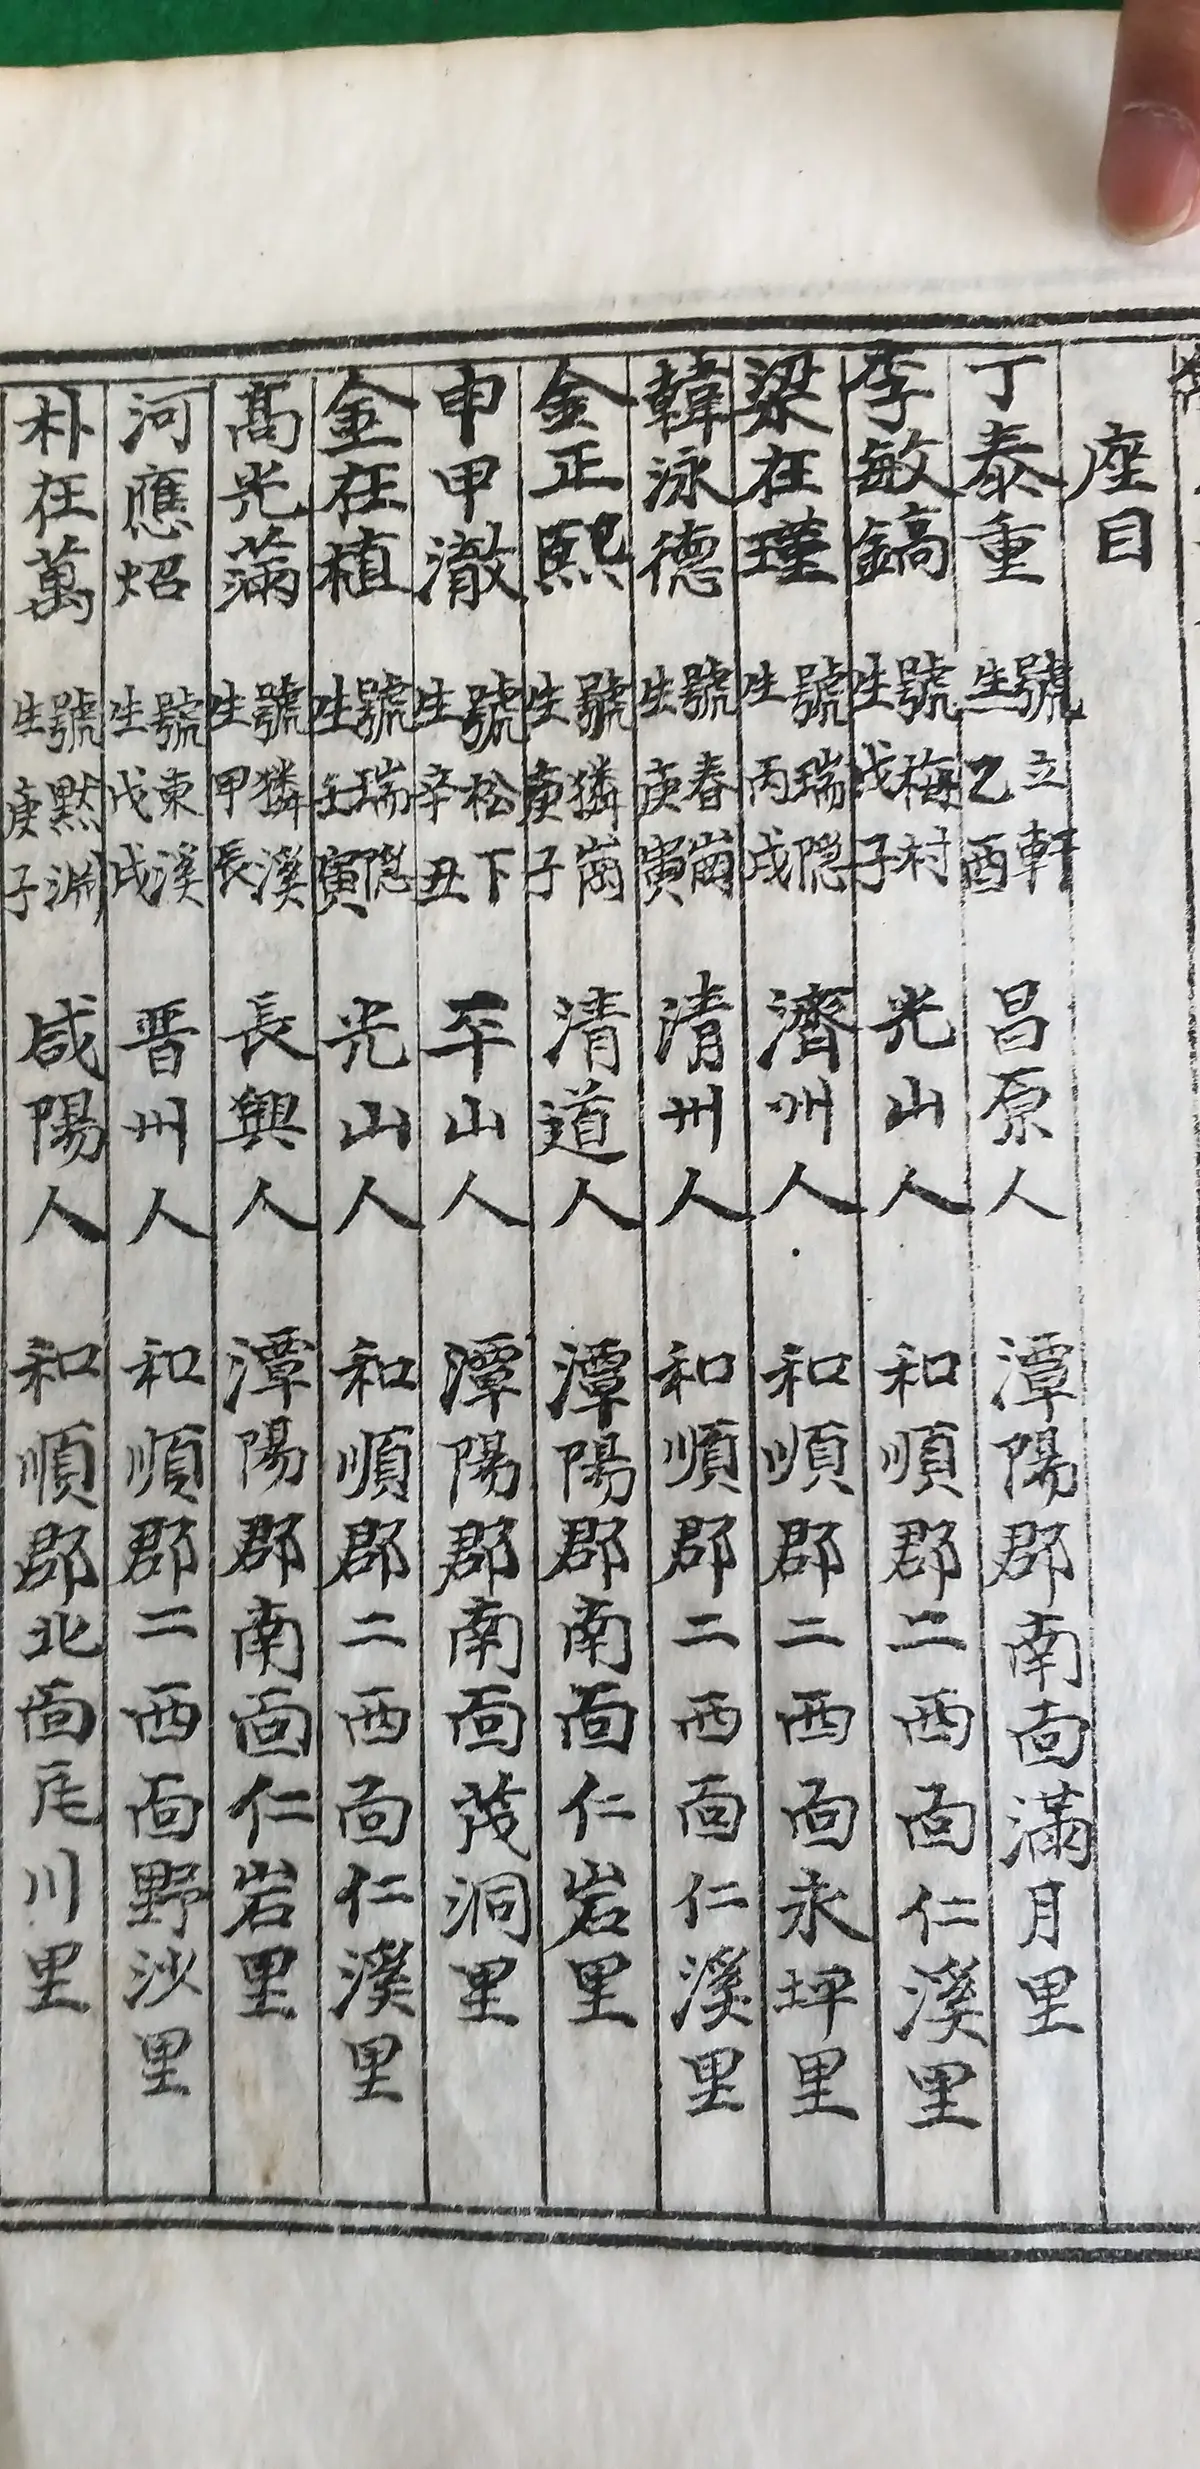 座目
丁泰重 號立軒 生乙酉 昌原人 潭陽郡南面滿月里
李敏鎬 號梅村 生戊子 光山人 和順郡二西面仁溪里
梁在瑾 號瑞隠 生丙戌 濟州人 和順郡二西面永坪里
韓泳德 號春崗 生庚寅 清州人 和順郡二西面仁溪里
金正熙 號獜崗 生庚子 清道人 潭陽郡南面仁岩里
申甲澈 號松下 生辛丑 平山人 潭陽郡南面茂洞里
金在植 號瑞隠 生壬寅 光山人 和順郡二西面仁溪里
髙光滿 號獜溪 生甲長 長興人 潭陽郡南面仁岩里
河應炤 號東溪 生戊戌 晋州人 和順郡二西面野沙里
朴在萬 號黙淵 生庚子 咸陽人 和順郡北面尾川里